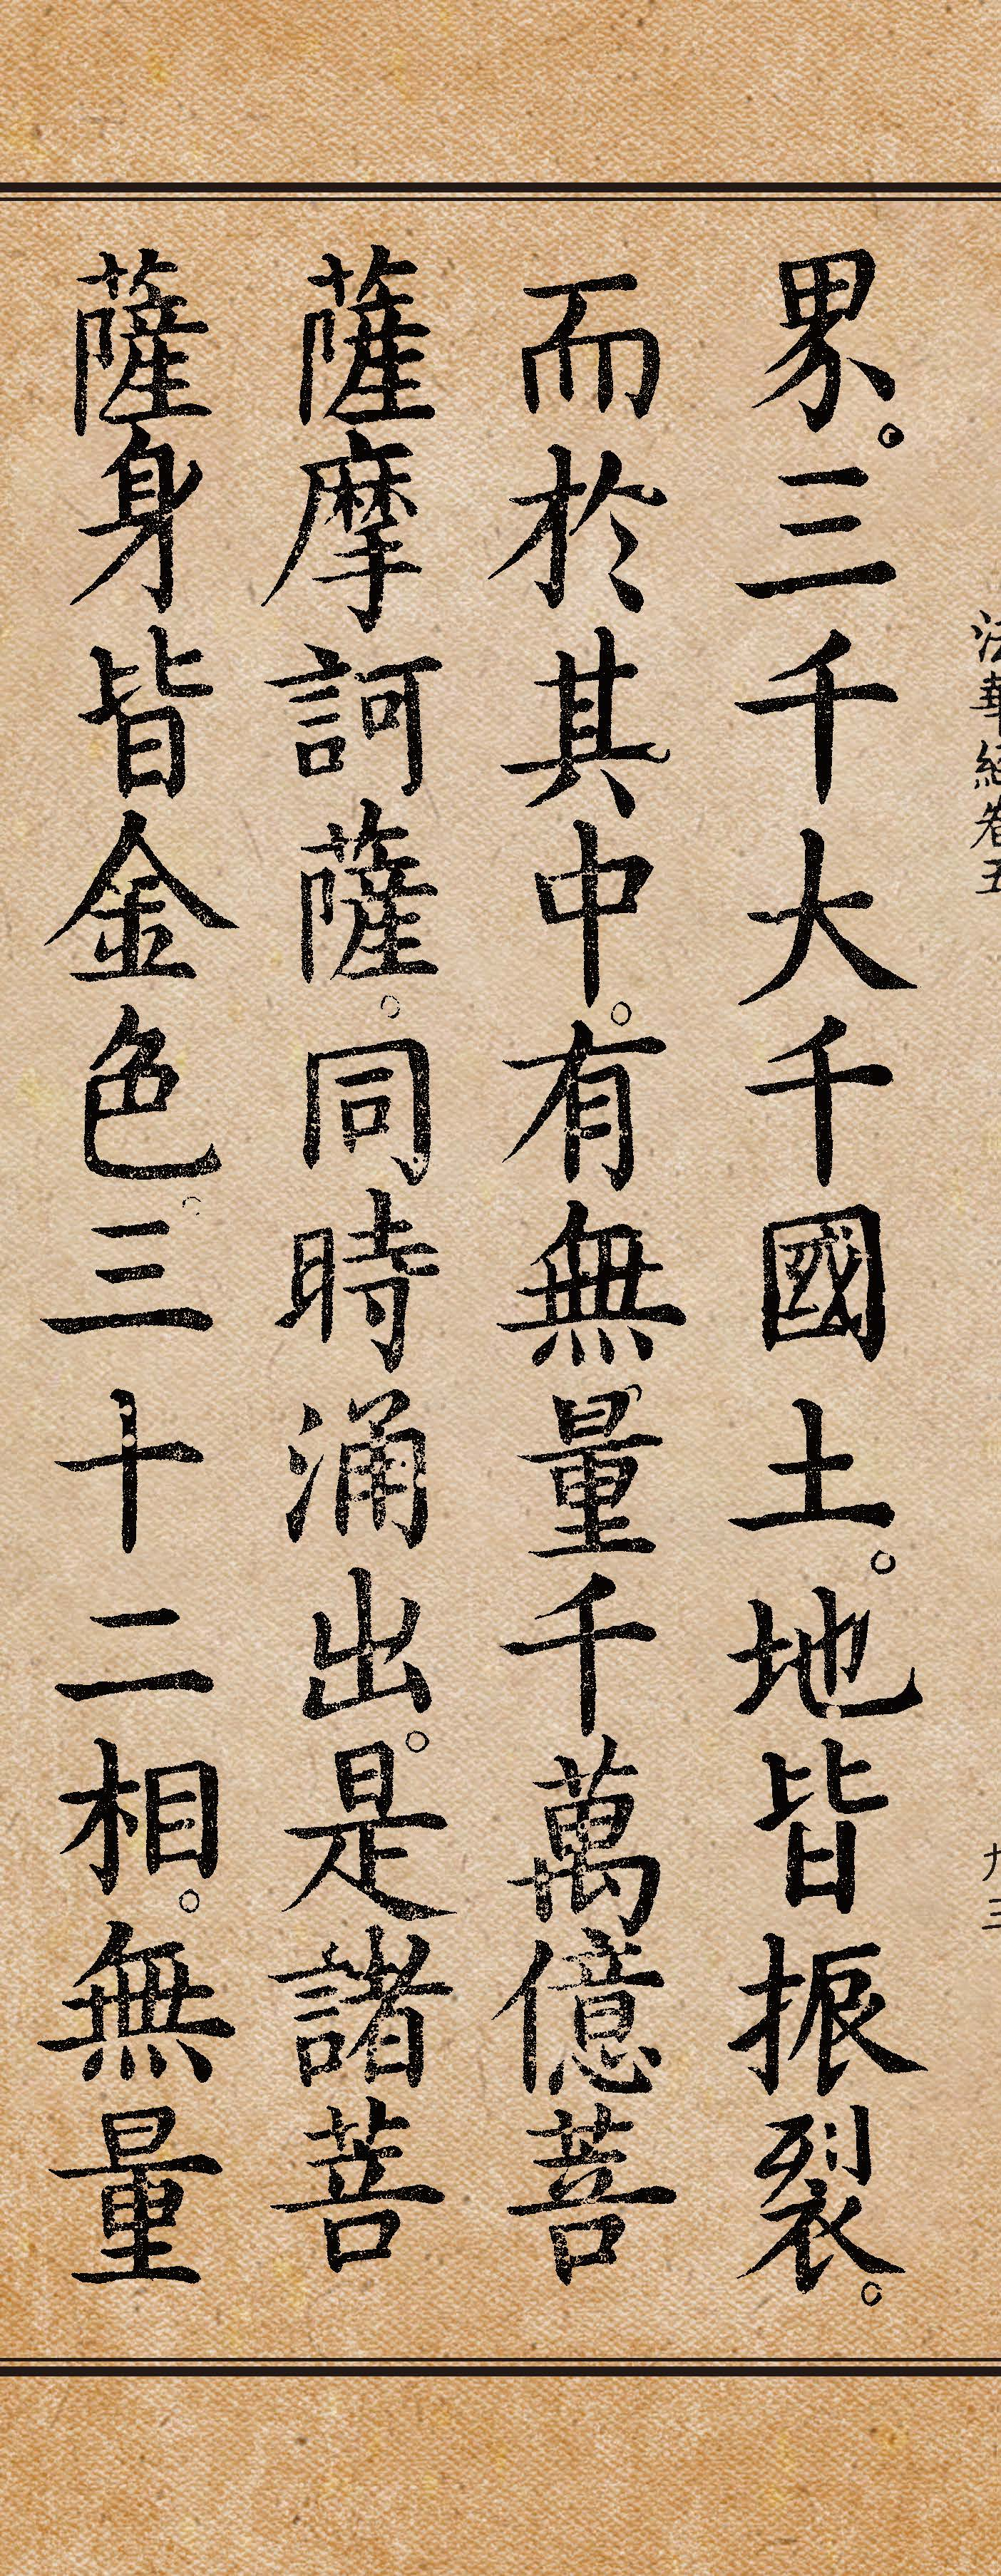 法華經卷五
九三
界。三千大千國土。地皆振裂。
而於其中。有無量千萬億菩
薩摩訶薩。同時涌出。是諸菩
薩身皆金色。三十二相。無量